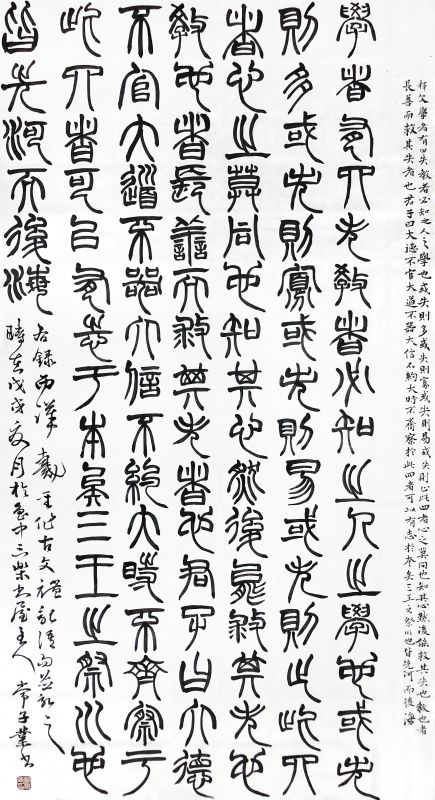 释文學者有四失教者必知之人之學也或失則多或失則寡或失則易或失則止此四者心之莫同也知其心然後能救其失也教也者
長善而救其失者也君子曰大德不官大道不器大信不約大時不齊察於此四者可以有志於本矣三王之祭川也皆先河而後海
學者有四失教者必知之人之學也或失
則多或失則寡或失則易或失則止此四
者心之莫同也知其心然後能救其失也
教也者長善而救其失者也君子曰大德
不官大道不器大信不約大時不齊察于
此四者可以有志于本矣三王之祭川也
皆先河而後海
右錄西漢戴聖作古文禮記
時在戊戌夏月於魯中三柴書屋主人常子業書